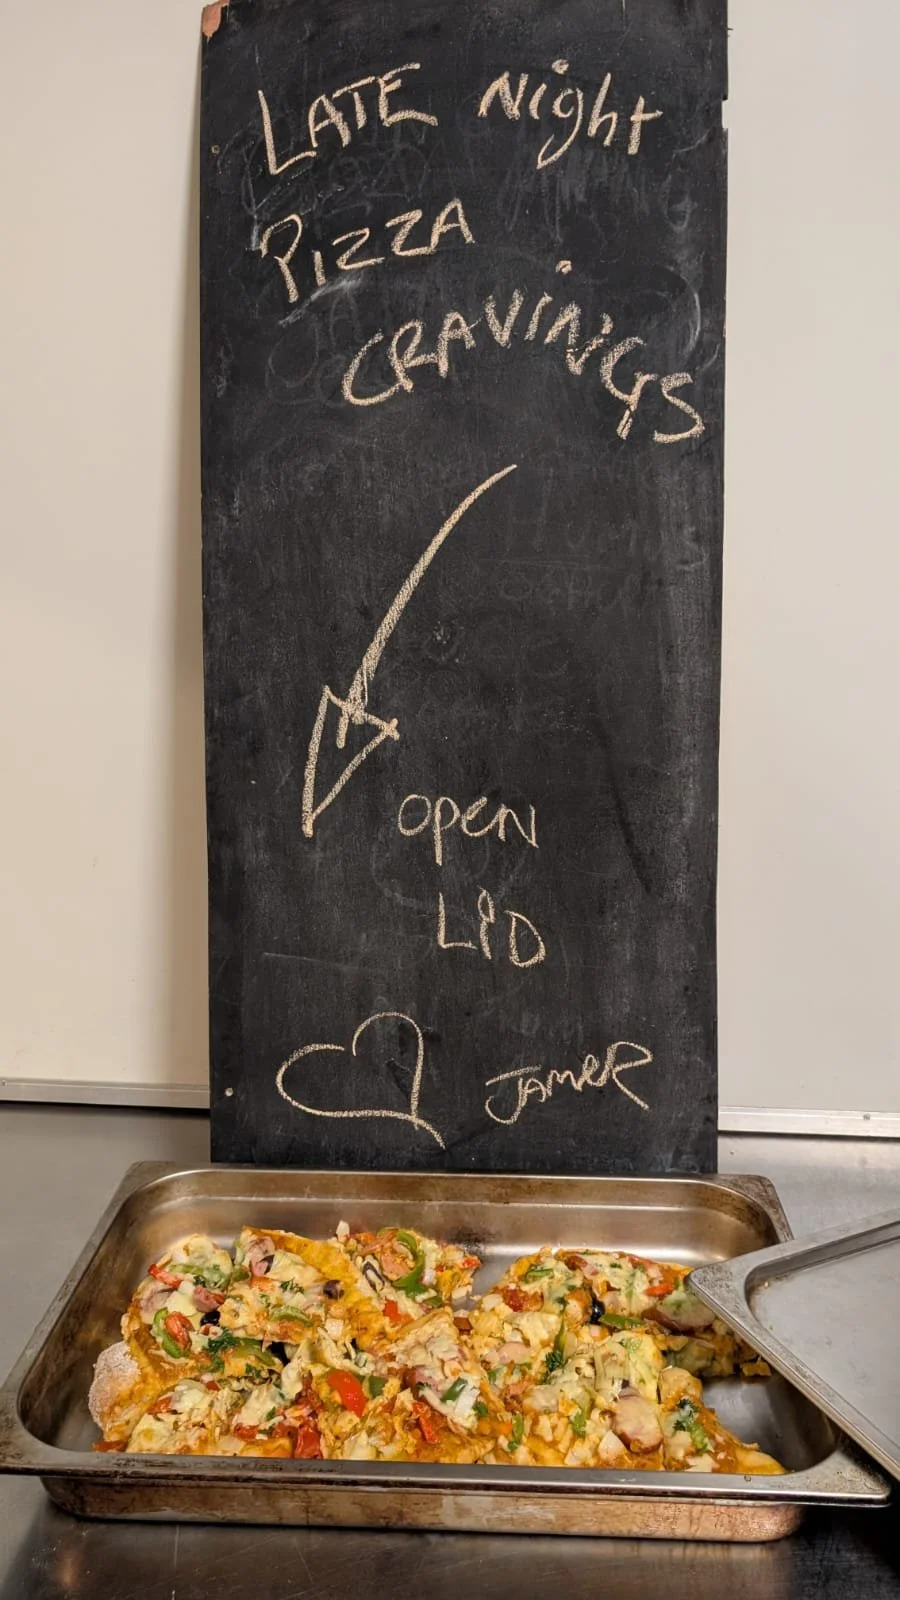 LATE Night
PIZZA
CRAViNGS
open
LiD
JAMeR